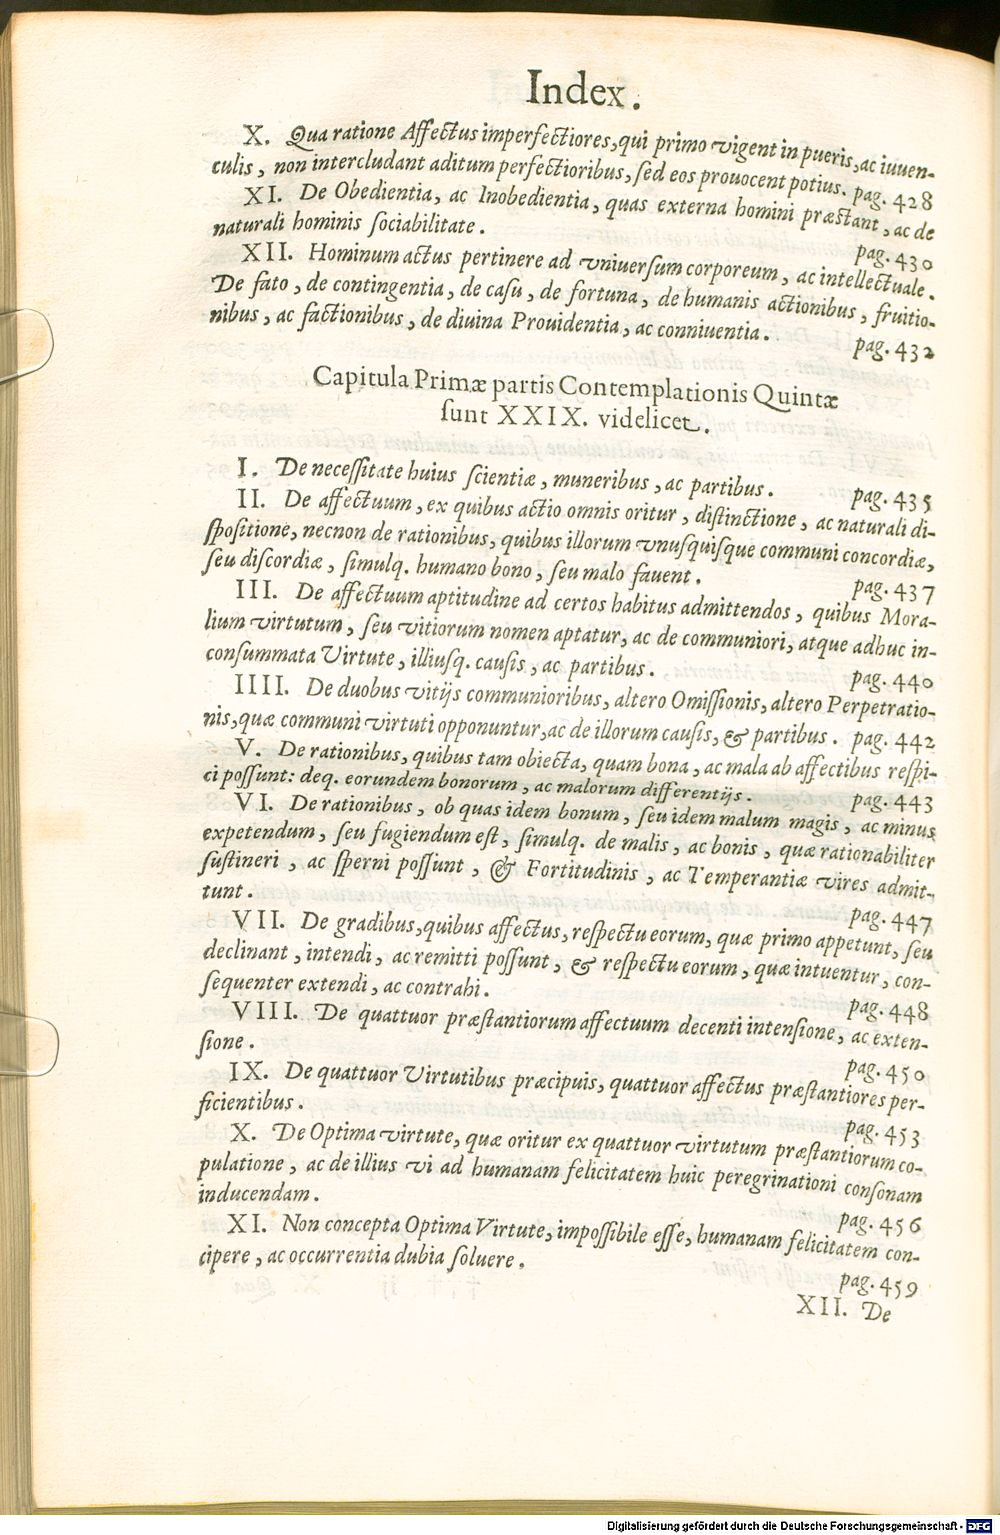 Index.
X. Qua ratione Affectus imperfectiores, qui primo vigent in pueris, ac iuuen-
culis, non intercludant aditum perfectioribus, ſed eos prouocent potius. pag. 428
XI. De Obedientia, ac Inobedientia, quas externa homini præſtant, ac de
naturali hominis ſociabilitate. pag. 430
XII. Hominum actus pertinere ad vniuerſum corporeum, ac intellectuale.
De fato, de contingentia, de caſu, de fortuna, de humanis actionibus, fruitio-
nibus, ac factionibus, de diuina Prouidentia, ac conniuentia. pag. 432
Capitula Primæ partis Contemplationis Quintæ
ſunt XXIX. videlicet.
I. De neceſſitate huius ſcientiæ, muneribus, ac partibus. pag. 435
II. De affectuum, ex quibus actio omnis oritur, diſtinctione, ac naturali di-
ſpoſitione, necnon de rationibus, quibus illorum vnuſquiſque communi concordiæ,
ſeu diſcordiæ, ſimulq. humano bono, ſeu malo fauent. pag. 437
III. De affectuum aptitudine ad certos habitus admittendos, quibus Mora-
lium virtutum, ſeu vitiorum nomen aptatur, ac de communiori, atque adhuc in-
conſummata Virtute, illiuſq. cauſis, ac partibus. pag. 440
IIII. De duobus vitijs communioribus, altero Omiſſionis, altero Perpetratio-
nis, quæ communi virtuti opponuntur, ac de illorum cauſis, & partibus. pag. 442
V. De rationibus, quibus tam obiecta, quam bona, ac mala ab affectibus reſpi-
ci poſſunt: deq. eorundem bonorum, ac malorum differentijs. pag. 443
VI. De rationibus, ob quas idem bonum, ſeu idem malum magis, ac minus
expetendum, ſeu fugiendum eſt, ſimulq. de malis, ac bonis, quæ rationabiliter
ſuſtineri, ac ſperni poſſunt, & Fortitudinis, ac Temperantiæ vires admit-
tunt. pag. 447
VII. De gradibus, quibus affectus, reſpectu eorum, quæ primo appetunt, ſeu
declinant, intendi, ac remitti poſſunt, & reſpectu eorum, quæ intuentur, con-
ſequenter extendi, ac contrahi. pag. 448
VIII. De quattuor præſtantiorum affectuum decenti intenſione, ac exten-
ſione. pag. 450
IX. De quattuor Virtutibus præcipuis, quattuor affectus præſtantiores per-
ficientibus. pag. 453
X. De Optima virtute, quæ oritur ex quattuor virtutum præſtantiorum co-
pulatione, ac de illius vi ad humanam felicitatem huic peregrinationi conſonam
inducendam. pag. 456
XI. Non concepta Optima Virtute, impoſſibile eſſe, humanam felicitatem con-
cipere, ac occurrentia dubia ſoluere. pag. 459
XII. De
Digitalisierung gefördert durch die Deutsche Forschungsgemeinschaft - DFG